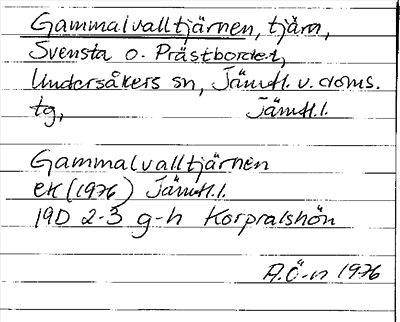 Gammalvalltjärnen, tjärn,
Svensta o. Prästbordet,
Undersåkers sn, Jämtl. v. doms.
tg, Jämtl.l.
Gammalvalltjärnen
ek (1976) Jämtl.l.
19D 2-3 g-h Korpralshön
A.Ö-n 1976